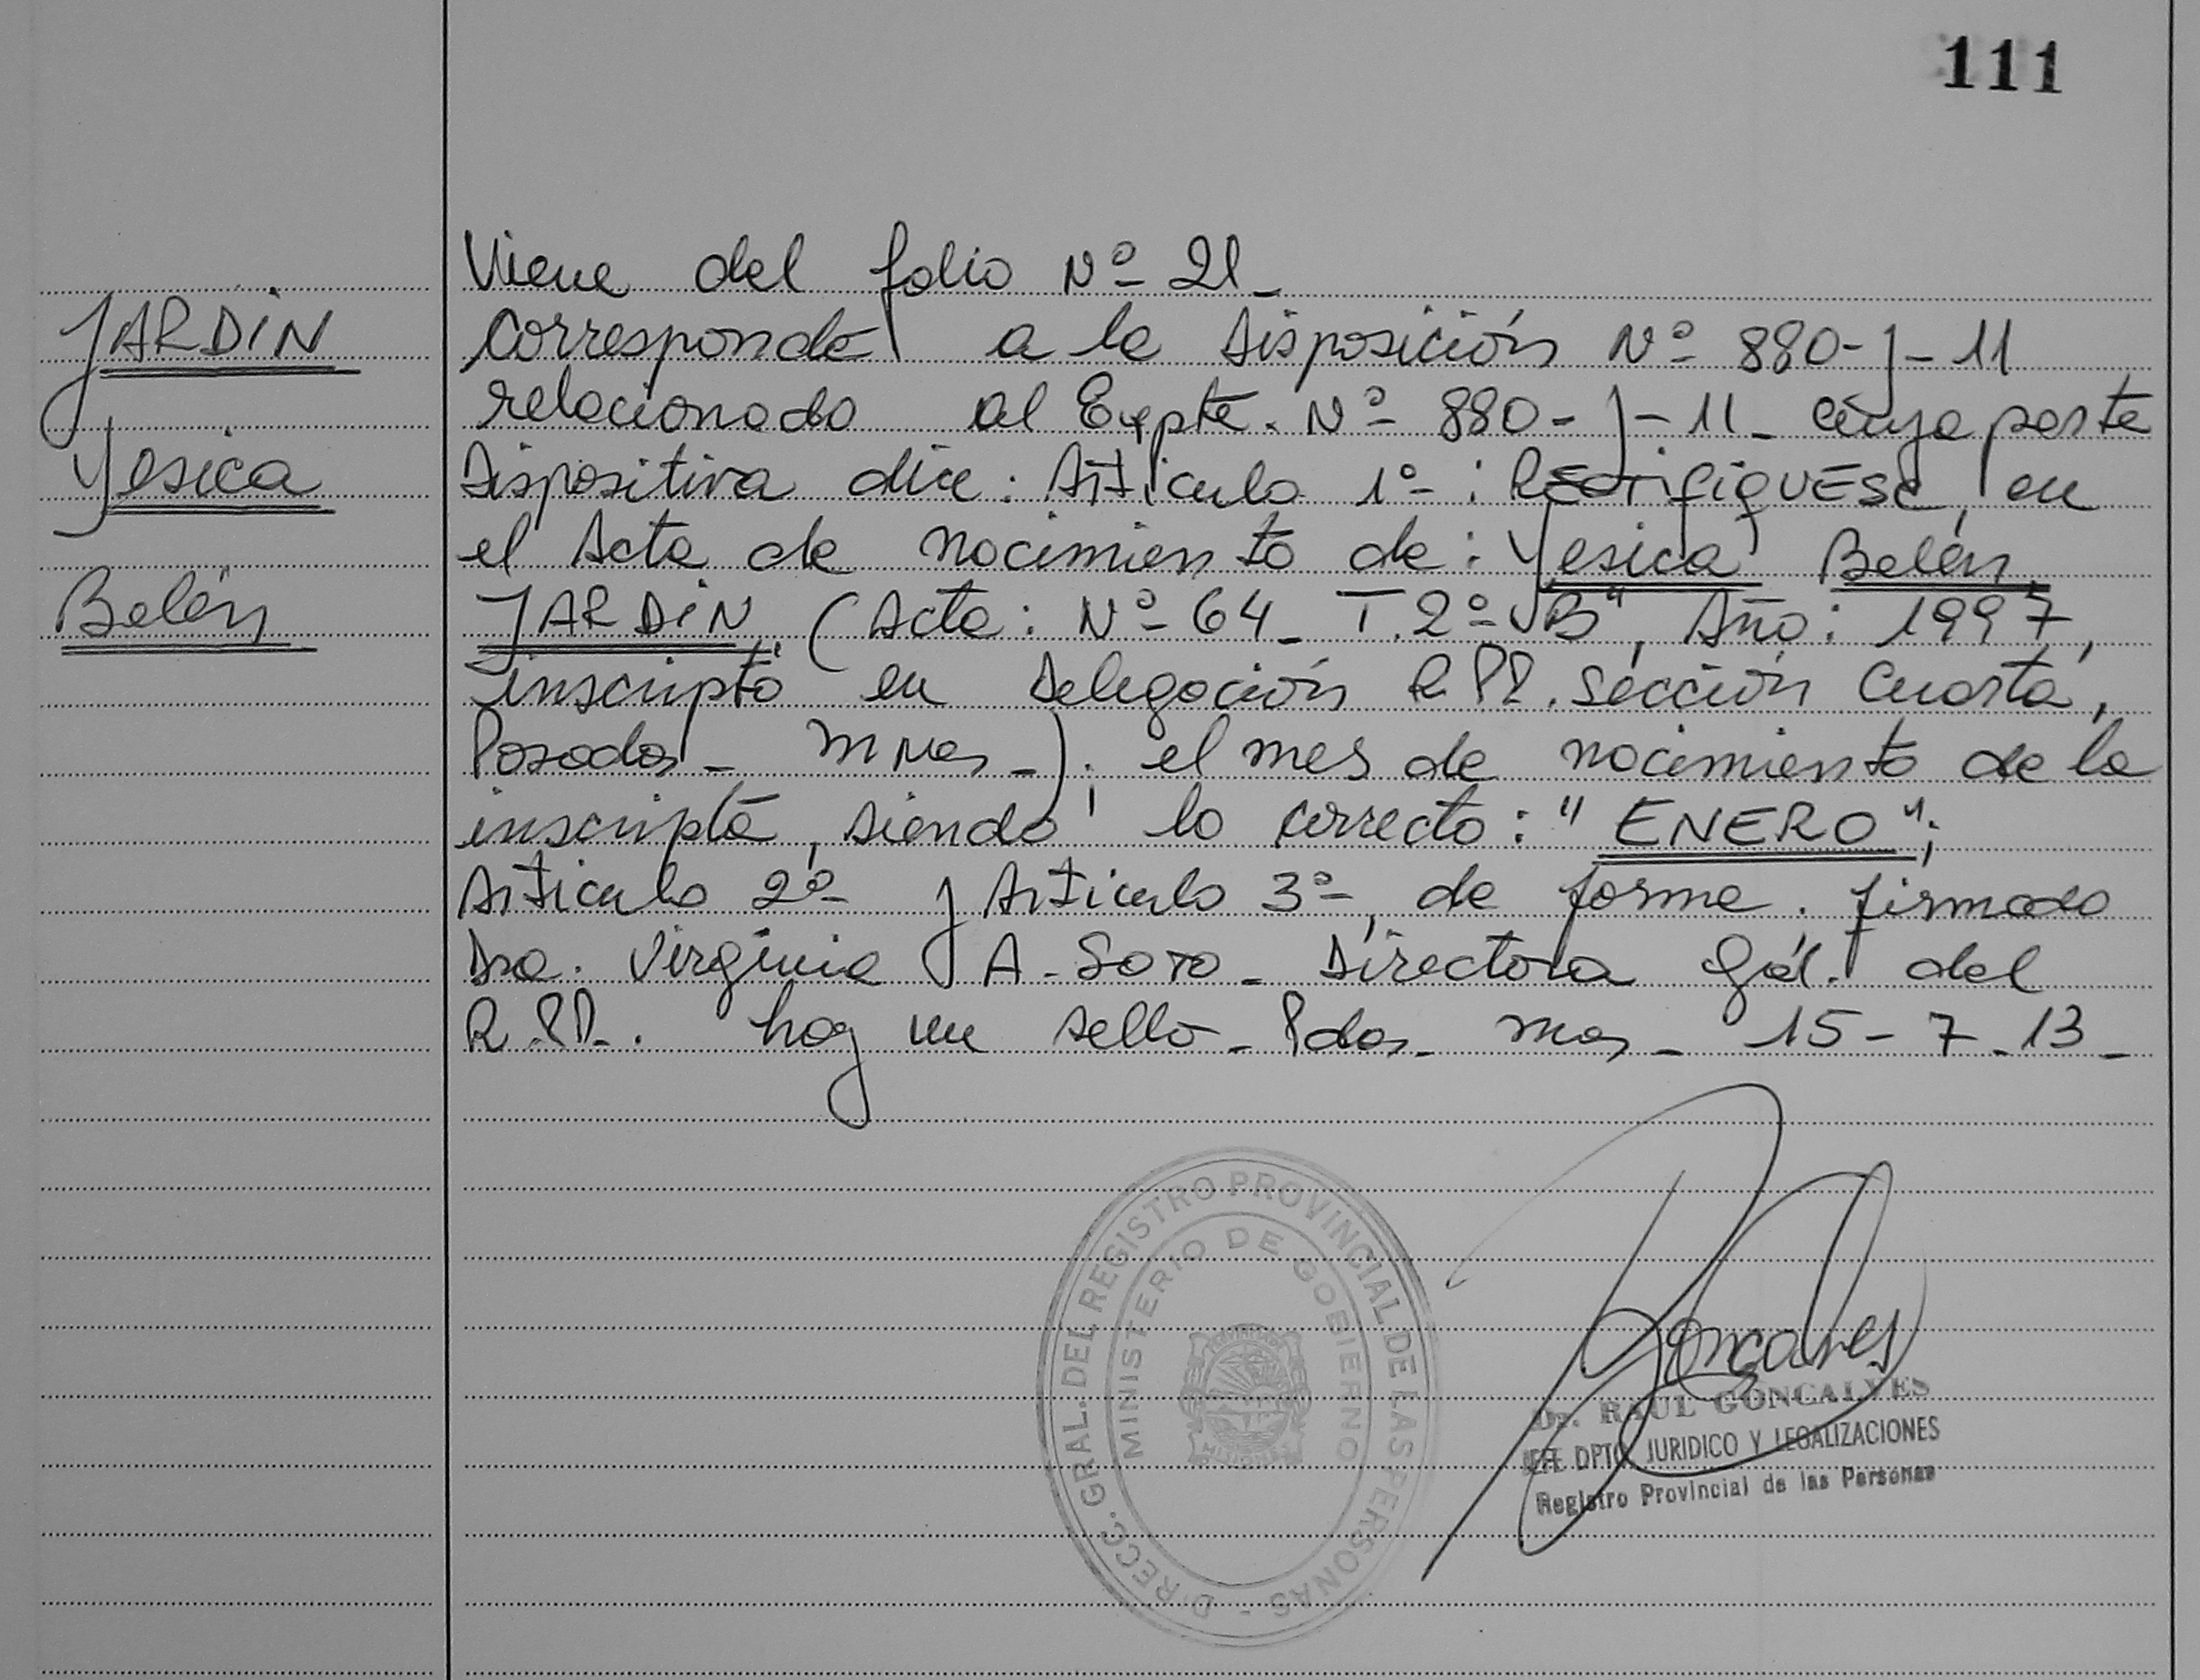 111
Viene del folio Nº 21_
JARDIN
Corresponde a la Disposición Nº 880-J-11
relacionado al Expte. Nº 880-J-11_ cuya parte
Yesica
Dispositiva dice: Artículo 1º: RECTIFIQUESE, en
el Acta de nacimiento de: Yesica Belén
Belén
JARDIN, (Acta: Nº 64_ T.2º "B", Año: 1997,
inscripta en Delegación R.P.P. Sección Cuarta,
Posadas_ Mnes_); el mes de nacimiento de la
inscripta, siendo lo correcto: "ENERO";
Artículo 2º y Artículo 3º, de forma. Firmado
Dra. Virginia A. Soto_ Directora Gral. del
R.P.P. hay un sello_ Pdas_ Mnes_ 15-7-13_
DIRECC. GRAL. DEL REGISTRO PROVINCIAL DE LAS PERSONAS -
MINISTERIO DE GOBIERNO
MISIONES
Goncalves
Dr. RAUL GONCALVES
JEFE DPTO. JURIDICO Y LEGALIZACIONES
Registro Provincial de las Personas